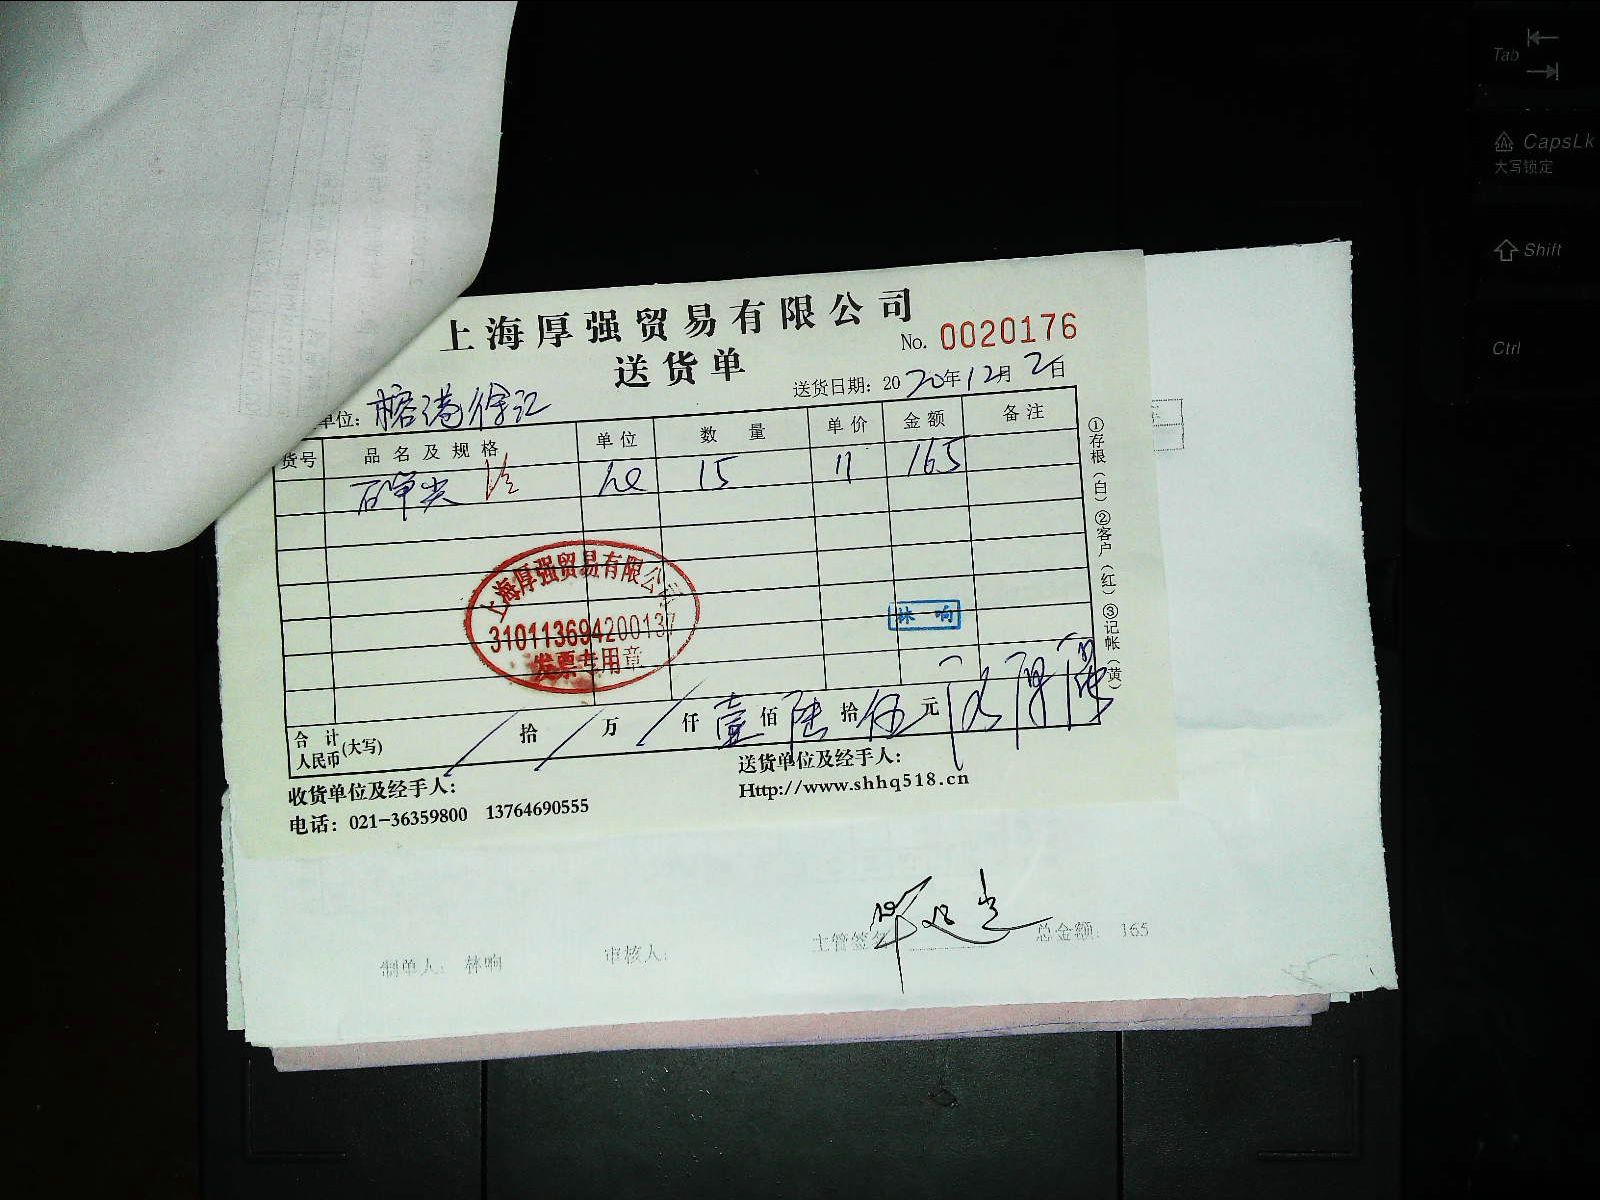 上海厚强贸易有限公司
No. 0020176
送货单
送货日期：2020年12月2日
单位：榕港徐汇
货号 品名及规格 单位 数量 单价 金额 备注
15 11 165
上海厚强贸易有限公司
310113694200137
发票专用章
林响
合计人民币(大写) 拾 万 仟 壹 佰 陆 拾 伍 元
收货单位及经手人：
送货单位及经手人：
电话：021-36359800 13764690555
Http://www.shhq518.cn
①存根（白）②客户（红）③记帐（黄）
制单人： 林响
审核人：
主管签名
总金额： 165
Tab
CapsLk
大写锁定
Shift
Ctrl